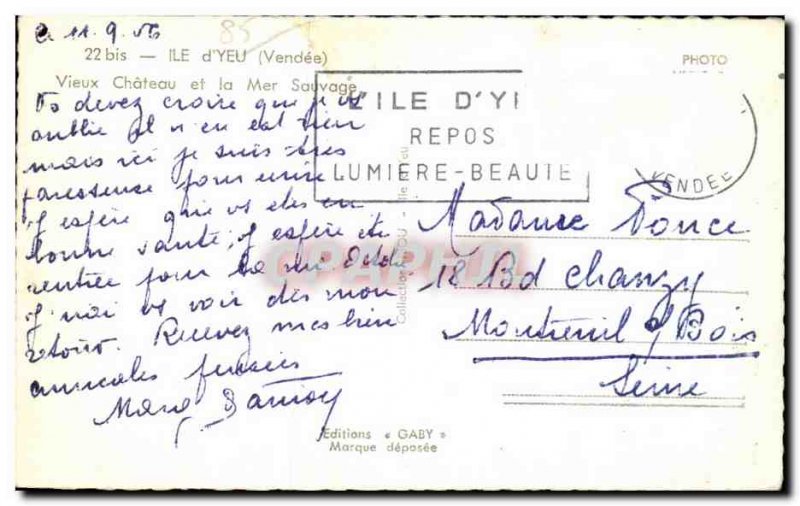 Le 11.9.56
85
22 bis — ILE d'YEU (Vendée)
Vieux Château et la Mer Sauvage
PHOTO
L'ILE D'YE
REPOS
LUMIERE-BEAUTE
VENDÉE
Vs devez croire que je vs
oublie il n'en est rien
mais ici je suis très
paresseuse pour écrire
j'espère que vs êtes en
bonne santé, j'espère être
rentrée pour la mi Octobre
j'irai vs voir dès mon
retour. Recevez mes bien
amicales pensées
Madame Ponce
18 Bd Chanzy
Montreuil s/ Bois
Seine
Editions « GABY »
Marque déposée